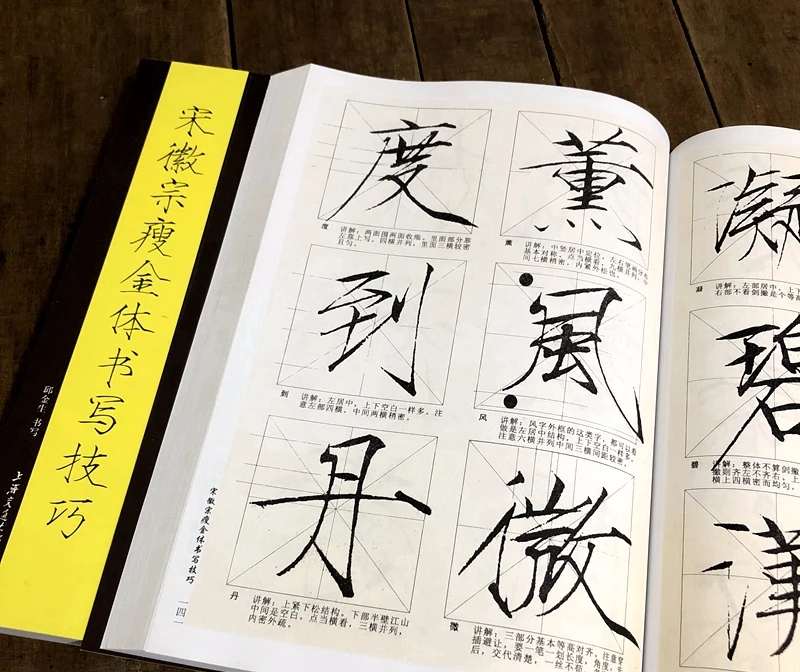 宋徽宗瘦金体书写技巧
邱金生 书写
宋徽宗瘦金体书写技巧
度
度
讲解：两面围两面收缩。里面部分靠
左靠上写。四横并列，里面三横较密
且匀。
薰
薰
讲解：中竖居中定位，左右
基本对称。点当横看，九横并列，
间七横稍密，内紧外松也。
到
到
讲解：左居中，上下空白一样多。注
意左部四横，中间两横稍密。
風
风
讲解：风字外框的这类字，都可以看
做是左居中结构，上下空白一样多。
注意六横并列中间三横间距较密。
丹
丹
讲解：上紧下松结构。下部半壁江山
中间是空白，点当横看，三横并列，
内密外疏。
微
微
讲解：三部分基本等高对齐，注意穿
插避让，要一笔一划长度，角度，
后，交代清楚，一丝不
凝
凝
讲解：左部居中，上下
右部不看剑撇是个等
碧
碧
讲解：整体不算剑撇
撇则齐左齐右。
横上四横密而均匀。
漢